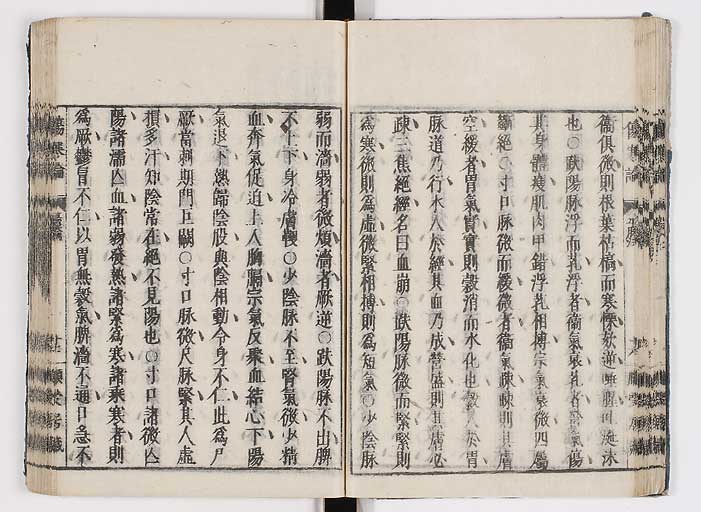 衞俱微則根葉枯槁而寒慄欬逆唾腥吐涎沫
也○趺陽脉浮而芤浮者衞氣衰芤者榮氣傷
其身體瘦肌肉甲錯浮芤相搏宗氣衰微四屬
斷絕○寸口脉微而緩微者衞氣疎疎則其膚
空緩者胃氣實實則穀消而水化也穀入於胃
脉道乃行水入於經其血乃成榮盛則其膚必
疎三焦絕經名曰血崩○趺陽脉微而緊緊則
爲寒微則爲虛微緊相搏則爲短氣○少陰脉
弱而濇弱者微煩濇者厥逆○趺陽脉不出脾
不上下身冷膚鞕○少陰脉不至腎氣微少精
血奔氣促迫上入胸膈宗氣反聚血結心下陽
氣退下熱歸陰股與陰相動令身不仁此爲尸
厥當刺期門巨闕○寸口脉微尺脉緊其人虛
損多汗知陰常在絕不見陽也○寸口諸微亾
陽諸濡亾血諸弱發熱諸緊爲寒諸乘寒者則
爲厥鬱冒不仁以胃無穀氣脾濇不通口急不
傷寒論